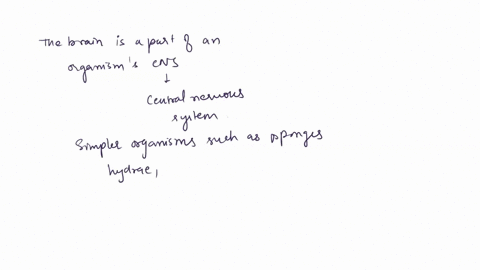 The brain is a part of an
organism's CNS
↓
Central nervous
system
Simpler organisms such as sponges
hydrae,